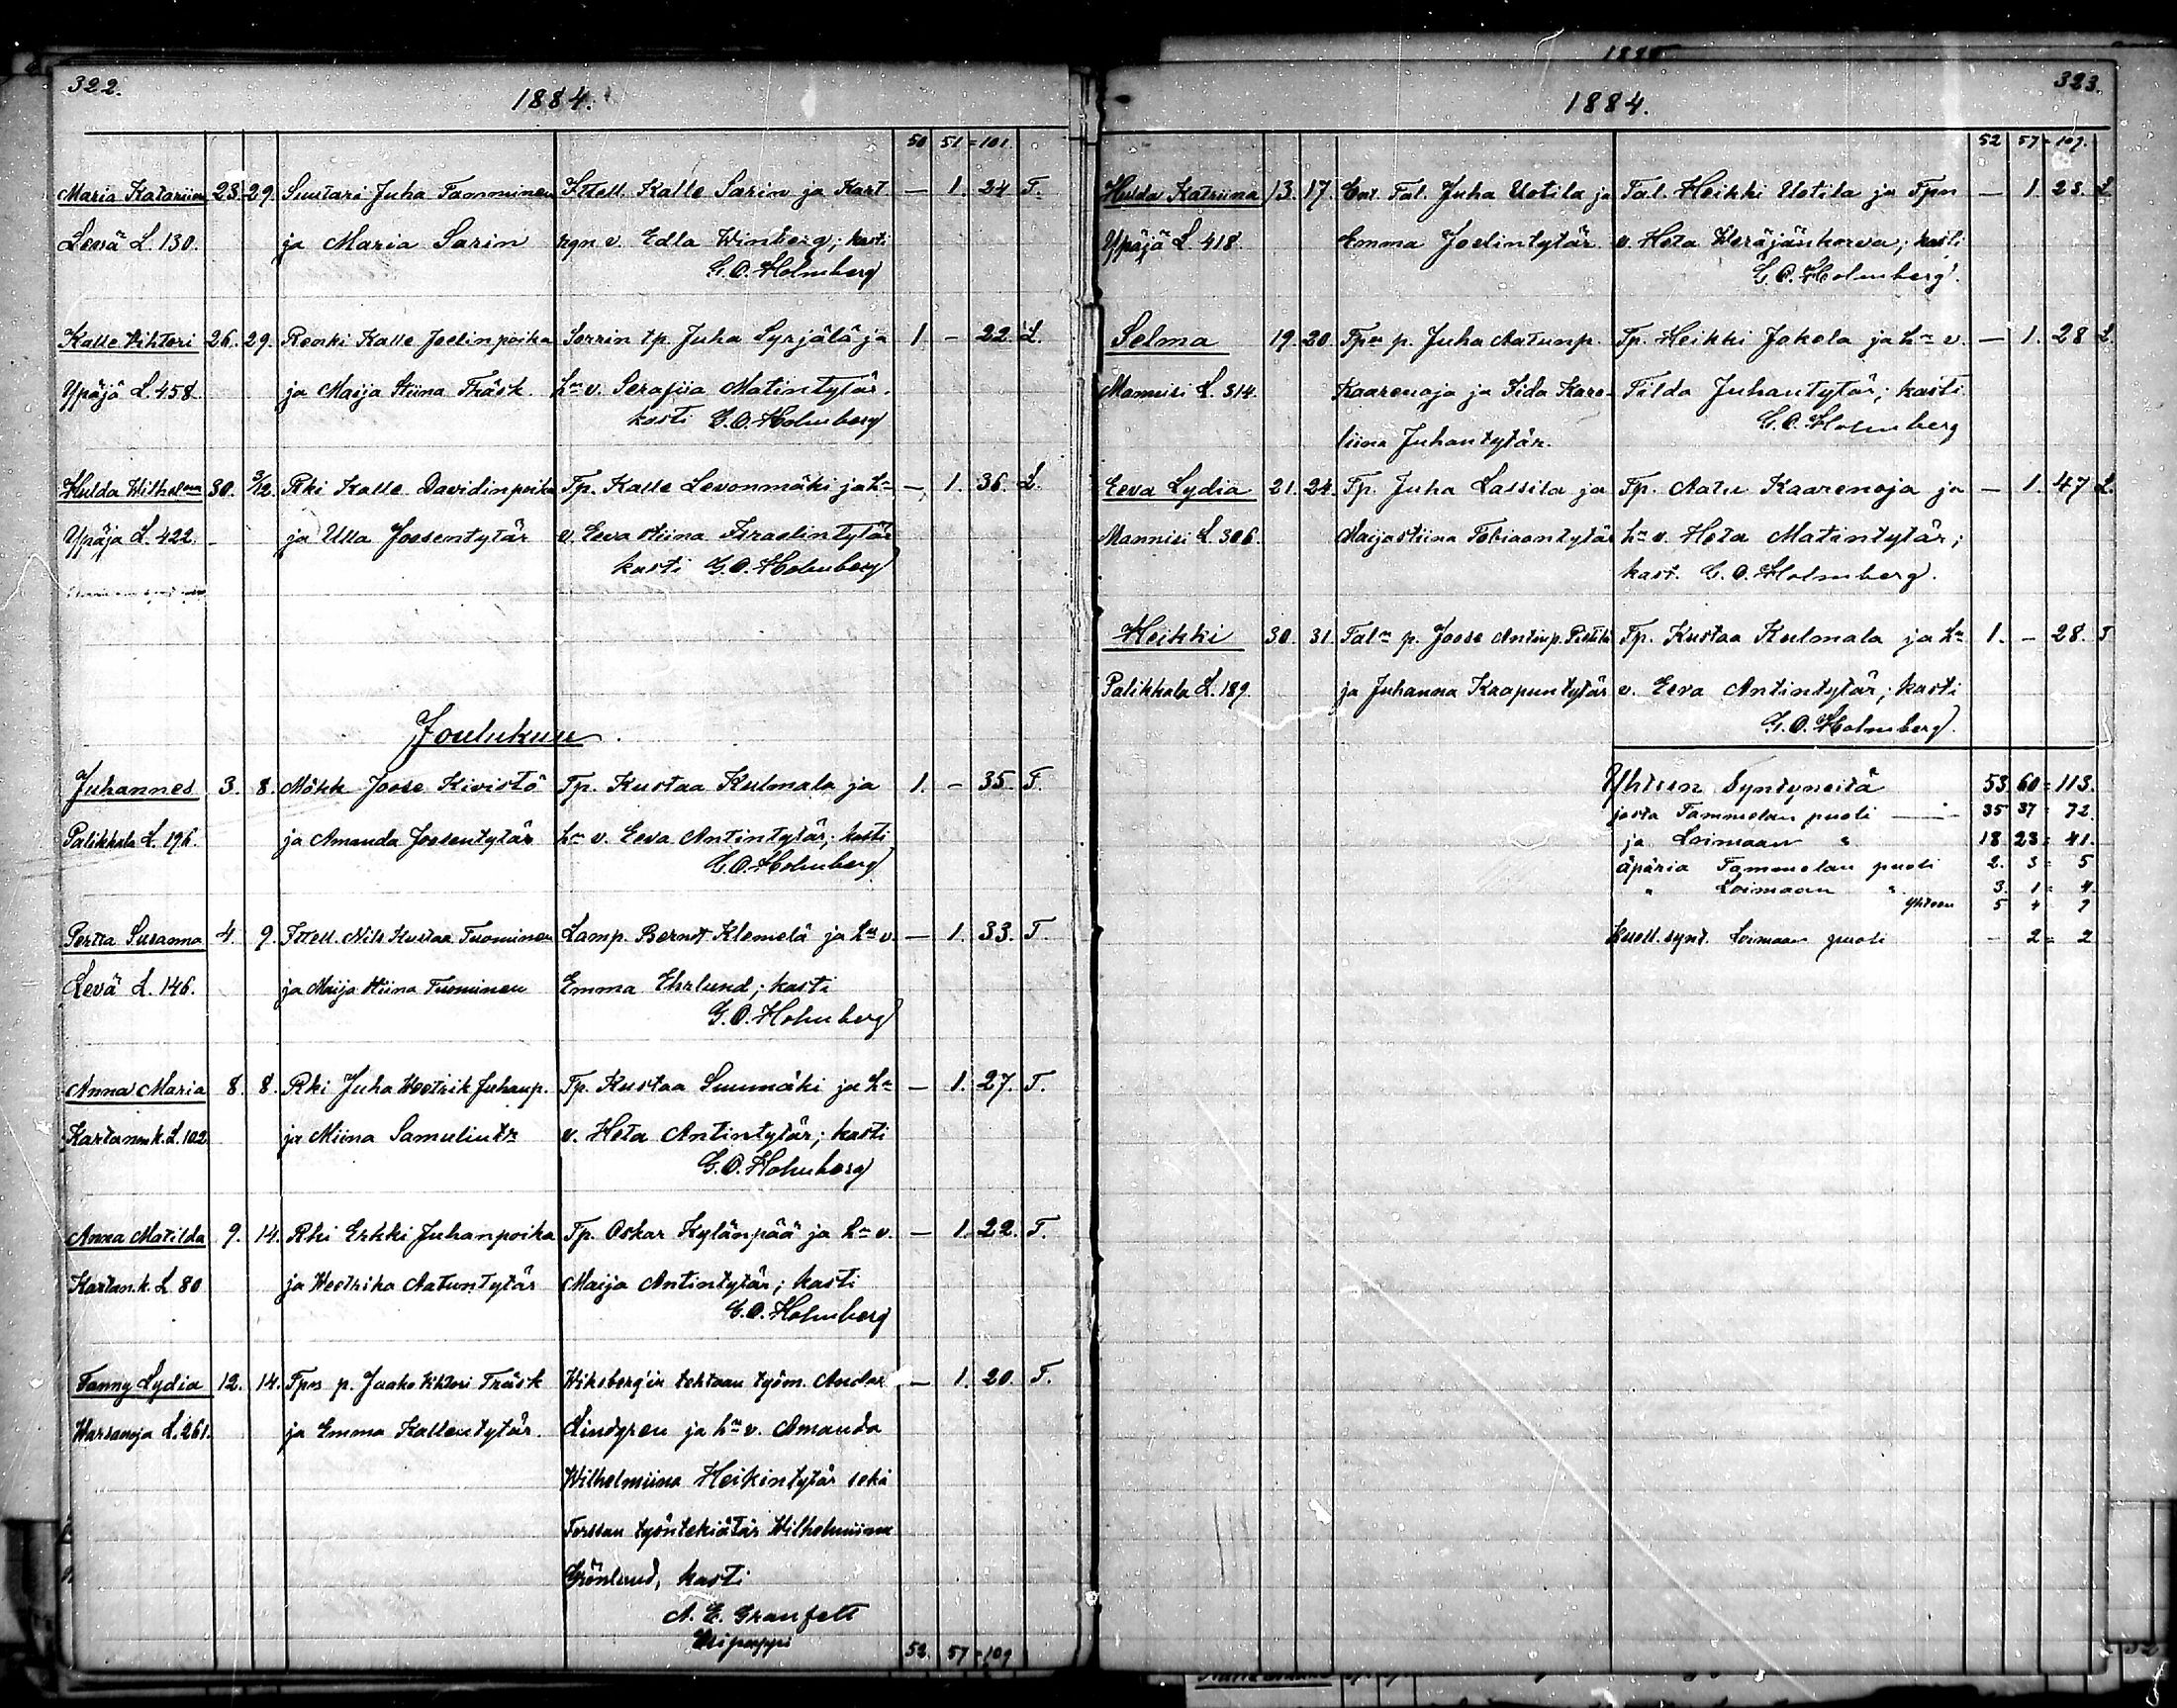 322.
1884.
50 51 = 101.
Maria Katariina 23. 29. Suutari Juha Tamminen Ittell. Kalle Sarin ja Kart — 1. 24 T.
Levä L. 130. ja Maria Sarin rgn v. Edla Winberg; kasti
G. O. Holmberg
Kalle Vihtori 26. 29. Renki Kalle Joelinpoika Sorrin tp. Juha Syrjälä ja 1 – 22. L.
Ypäjä L. 458. ja Maija Stiina Träsk. hn v. Serafiia Matintytär.
kasti G. O. Holmberg
Hulda Wilhelmina 30. 3/12. Rki Kalle Davidinpoika Tp. Kalle Levonmäki ja hn — 1. 36. L.
Ypäjä L. 422. ja Ulla Joosentytär v. Eeva Stiina Israelintytär
kasti G. O. Holmberg
Joulukuu.
Juhannes 3. 8. Mökk Joose Kivistö Tp. Kustaa Kulmala ja 1. – 35. T.
Palikkala L. 196. ja Amanda Joosentytär hn v. Eeva Antintytär; kasti
G. O. Holmberg
Pertta Susanna 4. 9. Ittell. Nils Kustaa Tuominen Lamp. Berndt Klemelä ja hn v. — 1. 33. T.
Levä L. 146. ja Maija Stiina Tuominen Emma Ehrlund; kasti
G. O. Holmberg
Anna Maria 8. 8. Rki Juha Wetrik Juhanp. Tp. Kustaa Suumäki ja hn — 1. 27. T.
Kartanonk. L. 102 ja Miina Samulintr v. Heta Antintytär; kasti
G. O. Holmberg
Anna Matilda 9. 14. Rki Erkki Juhanpoika Tp. Oskar Kylänpää ja hn v. — 1. 22. T.
Kartan.k. L. 80 ja Weetrika Aatuntytär Maija Antintytär; kasti
G. O. Holmberg
Fanny Lydia 12. 14. Tpn p. Jaako Vihtori Träsk Wiksberg'in tehtaan työm. Anders — 1. 20. T.
Warsanoja L. 261. ja Emma Kallentytär. Lindgren ja hn v. Amanda
Wilhelmiina Heikintytär sekä
Forssan työntekiätär Wilhelmiina
Grönlund, kasti
A. E. Granfelt
52. 57 = 109
323.
1884.
52 57 = 109.
Hulda Katriina 13. 17. Ent. Tal. Juha Uotila ja Tal. Heikki Uotila ja Tpn — 1. 23. L
Ypäjä L. 418. Emma Joelintytär v. Heta Weräjänkorva; kasti
G. O. Holmberg.
Selma 19. 20. Tpn p. Juha Aatunp. Tp. Heikki Jokela ja hn v. — 1. 28 L.
Mannisi L. 314. Kaarenoja ja Iida Karo- Tilda Juhantytär; kasti
G. O. Holmberg
liina Juhantytär.
Eeva Lydia 21. 24. Tp. Juha Lassila ja Tp. Aatu Kaarenoja ja — 1. 47 L.
Mannisi L. 306. Maijastiina Tobiaantytär hn v. Heta Matintytär;
kast. G. O. Holmberg.
Heikki 30. 31. Taln p. Joose Antinp. Pietilä Tp. Kustaa Kulmala ja hn 1. – 28. T
Palikkala L. 189. ja Juhanna Kaapuntytär v. Eeva Antintytär; kasti
G. O. Holmberg.
Yhteen Syntyneitä 53 60 = 113.
josta Tammelan puoli — 35 37 = 72.
ja Loimaan " 18 23 = 41.
äpäriä Tammelan puoli 2. 3 = 5
" Loimaan " 3. 1 = 4.
yhteen 5 4 9
kuoll. synt. Loimaan puoli – 2 = 2